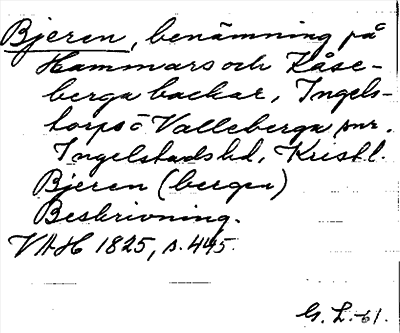 Bjeren, benämning på
Hammars och Kåse-
berga backar, Ingels-
torps o Valleberga snr.
Ingelstads hd, Krist l.
Bjeren (bergen)
Beskrivning.
VAH 1825, s. 445.
G. L. -61.